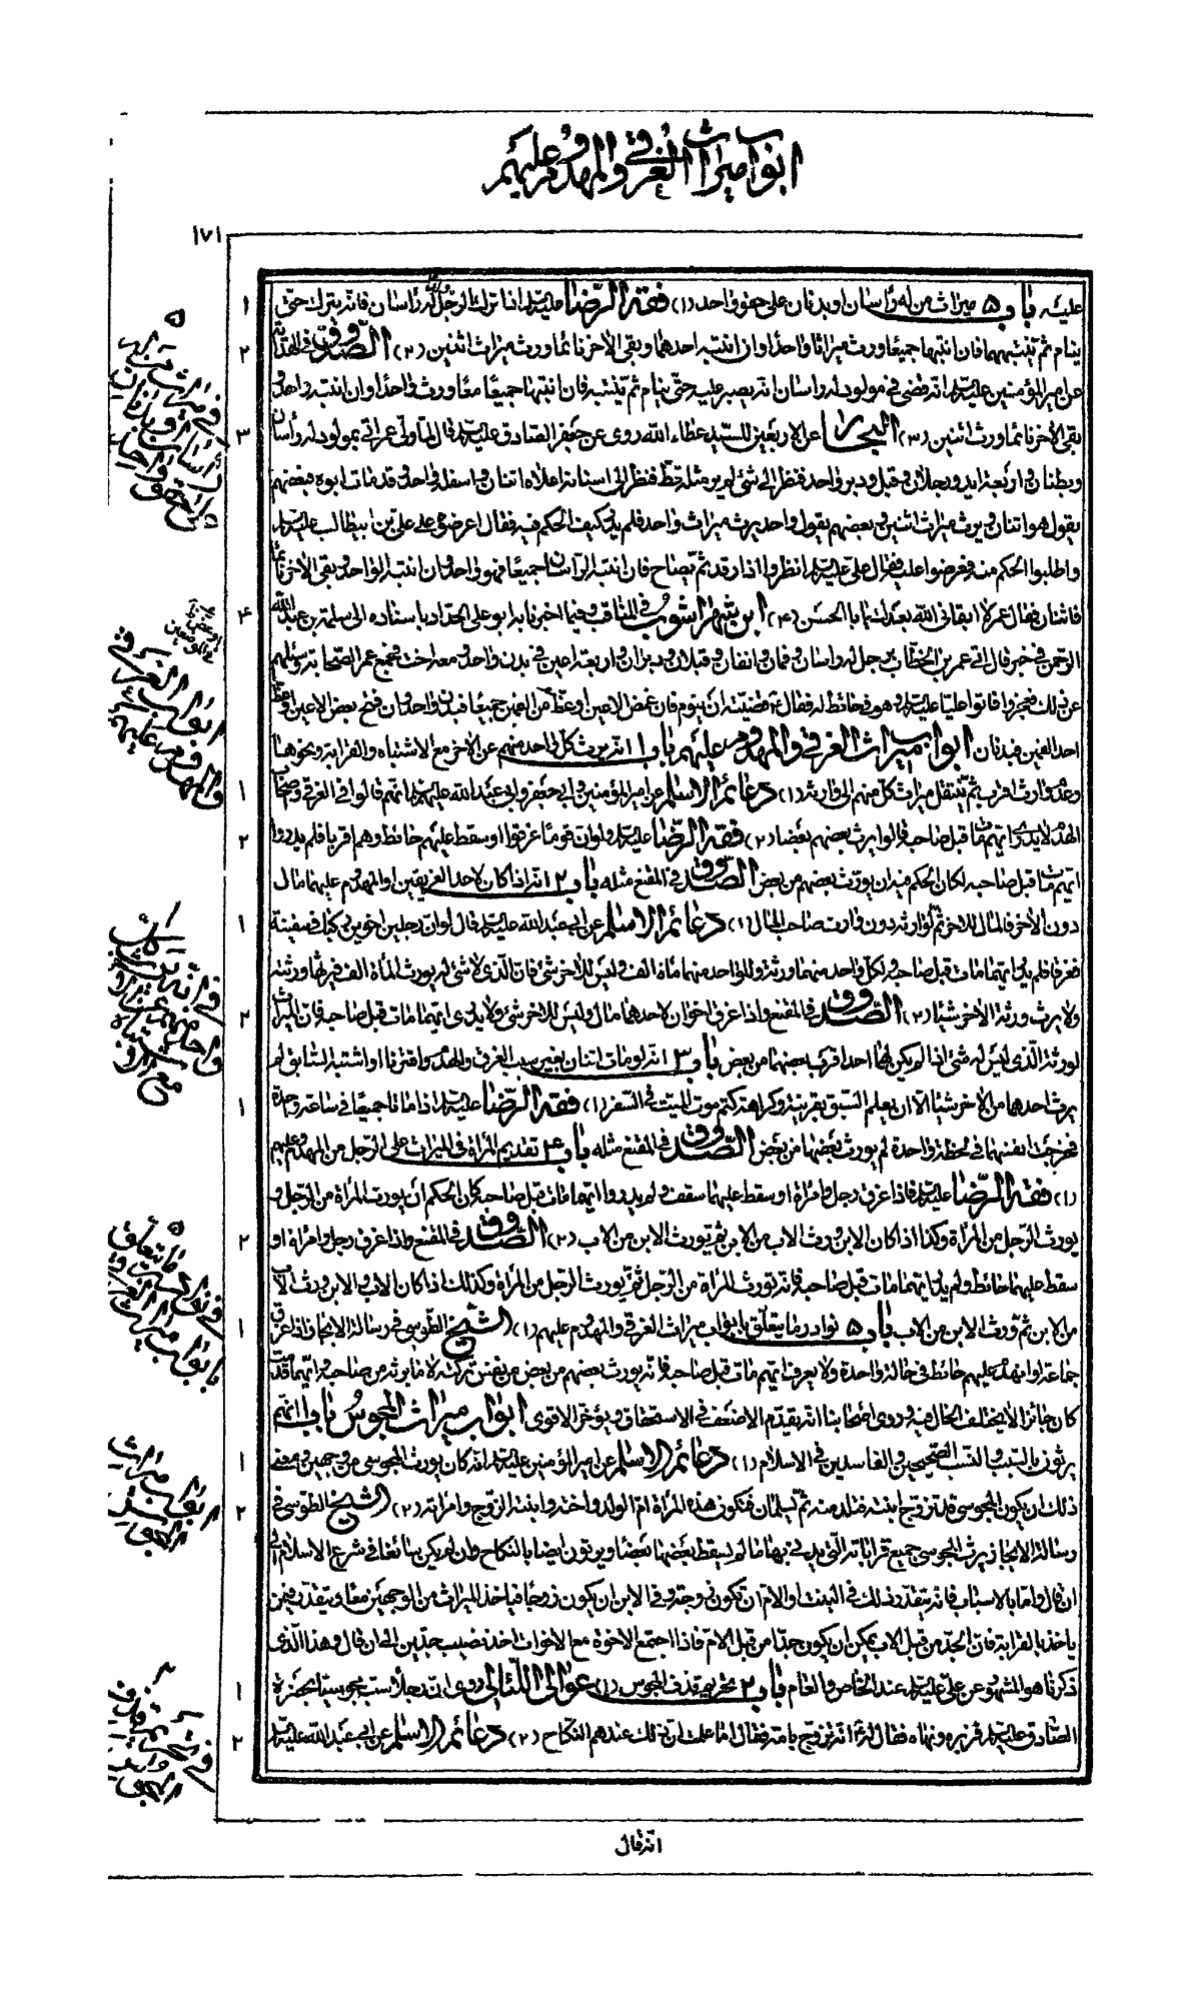 ابواب ميراث الغرقى والمهدوم عليهم
١٧١
عليه باب ٥ ميراث من له رأسان او بدنان على حقو واحد (١) فقه الرضا عليه السلم اذا ترك الرجل له رأسان فانه يترك حتى
ينام ثم ينبههما فان انتبها جميعا ورث ميراثا واحدا وان انتبه احدهما وبقى الآخر نائما ورث ميراث اثنين (٢) الصدوق في الهداية
عن امير المؤمنين عليه السلم انه قضى في مولود له رأسان انه يصبر عليه حتى ينام ثم ينبه فان انتبها جميعا معا ورث واحدا وان انتبه واحد و
بقى الآخر نائما ورث اثنين (٣) البحار عن الاربعين للسيد عطاء الله روى عن جعفر الصادق عليه السلم قال لما ولى عمر اتى بمولود له رأسان
وبطنان واربعة ايد ورجلان وقبل ودبر واحد فنظر الى شئ لم ير مثله قط فنظر الى انسان اعلاه اثنان واسفله واحد وقد مات ابوه فبعضهم
يقول هو اثنان ويرث ميراث اثنين وبعضهم يقول واحد يرث ميراث واحد فلم يدر كيف الحكم فيه فقال اعرضوه على على بن ابيطالب عليه السلم
واطلبوا الحكم منه فعرضوا عليه فقال على عليه السلم انظروا اذا رقد ثم يصاح فان انتبه الرأسان جميعا فهو واحد وان انتبه الواحد وبقى الآخر نائما
فاثنان فقال عمر لا ابقانى الله بعدك يا ابا الحسن (٤) ابن شهر اشوب في المناقب فيما اخبرنا به ابو على الحداد باسناده الى سلمة بن عبد
الرحمن في خبر قال اتى عمر بن الخطاب برجل له رأسان وفمان وانفان وقبلان ودبران واربعة اعين في بدن واحد ومعه اخت فجمع عمر الصحابة وسئلهم
عن ذلك فعجزوا فاتوا عليا عليه السلم وهو في حائط له فقال قضيته ان ينوم فان غمض الاعين او غط من الفمين جميعا فبدن واحد وان فتح بعض الاعين او غط
احد الفمين فبدنان ابواب ميراث الغرقى والمهدوم عليهم باب ١ انه يرث كل واحد منهم عن الآخر مع الاشتباه والقرابة ونحوها
وعدم وارث اقرب ثم ينتقل ميراث كل منهم الى وارثه (١) دعائم الاسلام عن امير المؤمنين وابي جعفر وابي عبد الله عليهم السلم انهم قالوا في الغرقى واصحاب
الهدم لا يدرى ايهم مات قبل صاحبه قالوا يرث بعضهم بعضا (٢) فقه الرضا عليه السلم ولو ان قوما غرقوا او سقط عليهم حائط وهم اقرباء فلم يدروا
ايهم مات قبل صاحبه لكان الحكم فيه ان يورث بعضهم من بعض الصدوق في المقنع مثله باب ٢ انه اذا كان لاحد الغريقين او المهدوم عليهما مال
دون الآخر فالمال للآخر ثم لوارثه دون وارث صاحب المال (١) دعائم الاسلام عن ابي عبد الله عليه السلم قال لو ان رجلين اخوين ركبا في سفينة
فغرقا فلم يدر ايهما مات قبل صاحبه ولكل واحد منهما ورثة وللواحد منهما مائة الف وليس للآخر شئ فان الذى لا شئ له يورث المأة الف فيرثها ورثته
ولا يرث ورثة الآخر شيئا (٢) الصدوق في المقنع واذا غرق اخوان لاحدهما مال وليس للآخر شئ ولا يدرى ايهما مات قبل صاحبه فان الميراث
لورثة الذى ليس له شئ اذا لم يكن لهما احد اقرب بعضهما من بعض باب ٣ انه لو مات اثنان بغير سبب الغرق والهدم واقترنا او اشتبه السابق لم
يرث احدهما من الآخر شيئا الا ان يعلم السبق بقرينة وكراهة كتم موت الميت في السفر (١) فقه الرضا عليه السلم اذا ماتا جميعا في ساعة واحدة
فخرجت انفسهما في لحظة واحدة لم يورث بعضهما من بعض الصدوق في المقنع مثله باب ٤ تقديم المرأة في الميراث على الرجل من المهدوم عليهم
(١) فقه الرضا عليه السلم فاذا غرق رجل وامرأة او سقط عليهما سقف ولم يدروا ايهما مات قبل صاحبه كان الحكم ان يورث المرأة من الرجل و
يورث الرجل من المرأة وكذا اذا كان الابن ورث الاب من الابن ثم يورث الابن من الاب (٢) الصدوق في المقنع واذا غرق رجل وامرأة او
سقط عليهما حائط ولم يدر ايهما مات قبل صاحبه فانه تورث المرأة من الرجل ثم يورث الرجل من المرأة وكذلك اذا كان الاب والابن ورث الاب
من الابن ثم ورث الابن من الاب باب ٥ نوادر ما يتعلق بابواب ميراث الغرقى والمهدوم عليهم (١) الشيخ الطوسى في رسالة الايجاز اذا غرق
جماعة او انهدم عليهم حائط في حالة واحدة ولا يعرف ايهم مات قبل صاحبه فانه يورث بعضهم من بعض من نفس تركته لا ما يرثه من صاحبه وايهما قدمت
كان جائزا لا يختلف الحال فيه وروى اصحابنا انه يقدم الاضعف في الاستحقاق ويؤخر الاقوى ابواب ميراث المجوس باب ١ انهم
يرثون بالسبب والنسب الصحيحين والفاسدين في الاسلام (١) دعائم الاسلام عن امير المؤمنين عليه السلم انه كان يورث المجوسى من وجهين ومعنى
ذلك ان يكون المجوسى قد تزوج ابنته فتلد منه ثم يسلمان فتكون هذه المرأة ام الولد واخته وابنة الزوج وامرأته (٢) الشيخ الطوسى في
رسالة الايجاز يرث المجوسى جميع قراباته التى يدلى بها ما لم يسقط بعضها بعضا ويرثون ايضا بالنكاح وان لم يكن سائغا في شرع الاسلام الى
ان قال واما بالاسباب فانه يتقدر ذلك في البنت او الام ان تكون زوجة وفي الابن ان يكون زوجا فياخذ الميراث من الوجهين معا ويتقدر فيمن
ياخذ بالقرابة فان الجد من قبل الاب يمكن ان يكون جدا من قبل الام فاذا اجتمع الاخوة مع الاخوات اخذ نصيب جدين الى ان قال وهذا الذى
ذكرناه هو المشهور عن على عليه السلم عند الخاص والعام باب ٢ تحريم قذف المجوس (١) عوالى اللئالى روى ان رجلا سب مجوسيا بحضرة
الصادق عليه السلم فزبره ونهاه فقال له انه تزوج بامه فقال اما علمت ان ذلك عندهم النكاح (٢) دعائم الاسلام عن ابي عبد الله عليه السلم
انه قال
٥ في ميراث من له رأسان او بدنان على حقو واحد
ابواب ميراث الغرقى والمهدوم عليهم
في انه يرث كل واحد منهم عن الآخر مع الاشتباه
٥ في نوادر ما يتعلق بابواب ميراث الغرقى
ابواب ميراث المجوس
٢ في تحريم قذف المجوس